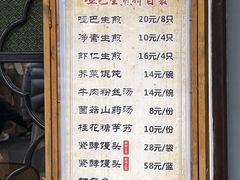 哑巴生煎价目表
哑巴生煎 20元/8只
净素生煎 10元/4只
虾仁生煎 16元/4只
荠菜馄饨 14元/碗
牛肉粉丝汤 14元/碗
菌菇山药汤 8元/份
桂花糖芋艿 10元/份
紧酵馒头 28元/袋
紧酵馒头 58元/蓝